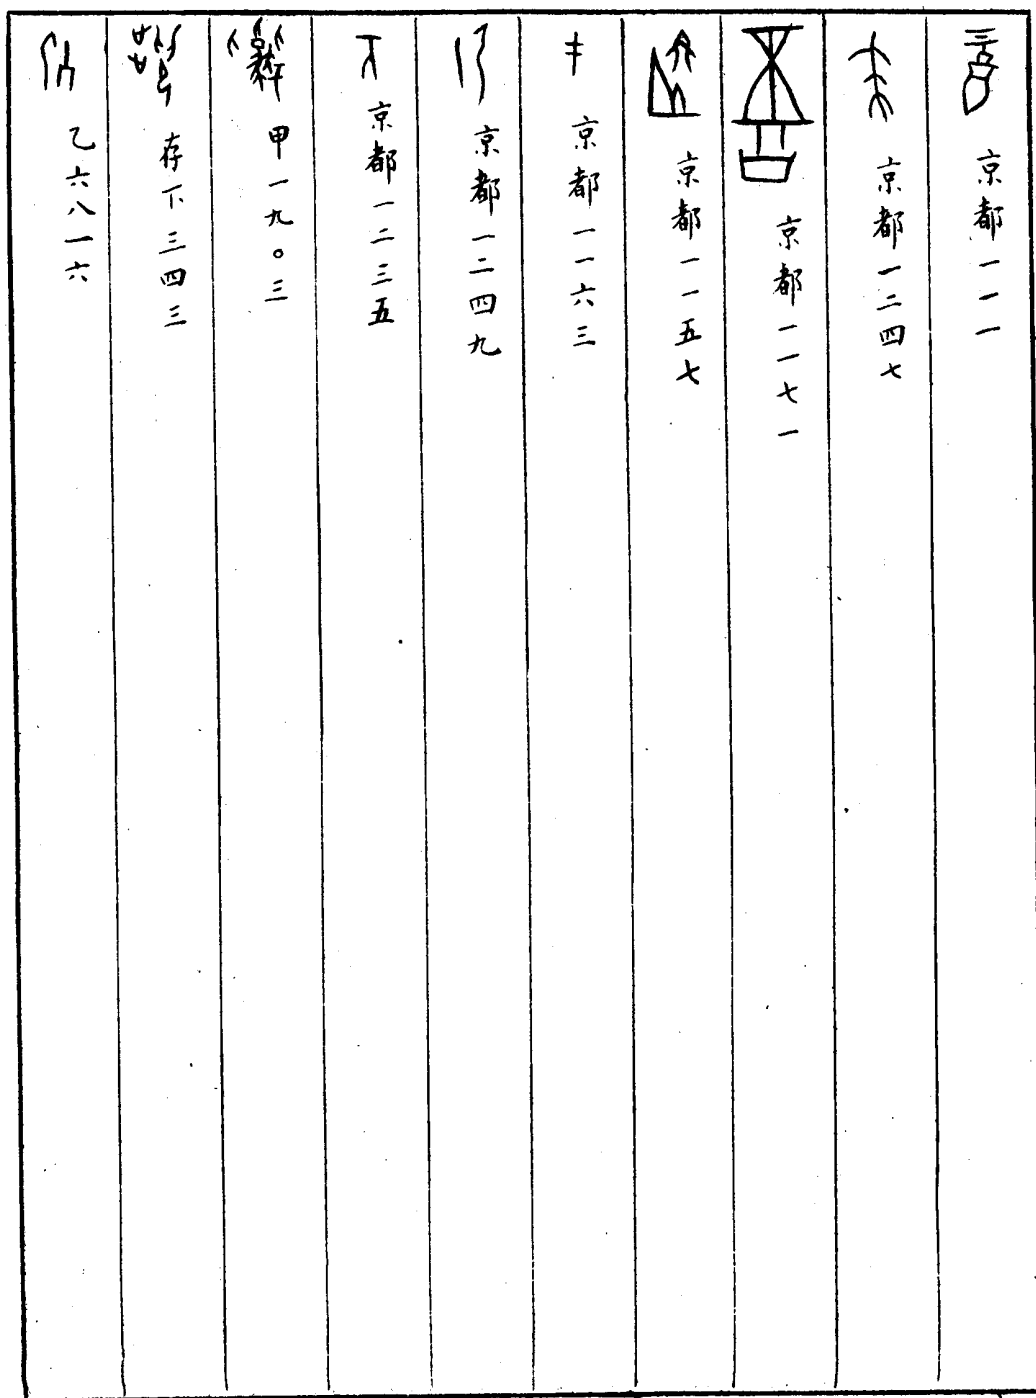 京都一一一
京都一二四七
京都一一七一
京都一一五七
京都一一六三
京都一二四九
京都一二三五
甲一九〇三
存下三四三
乙六八一六